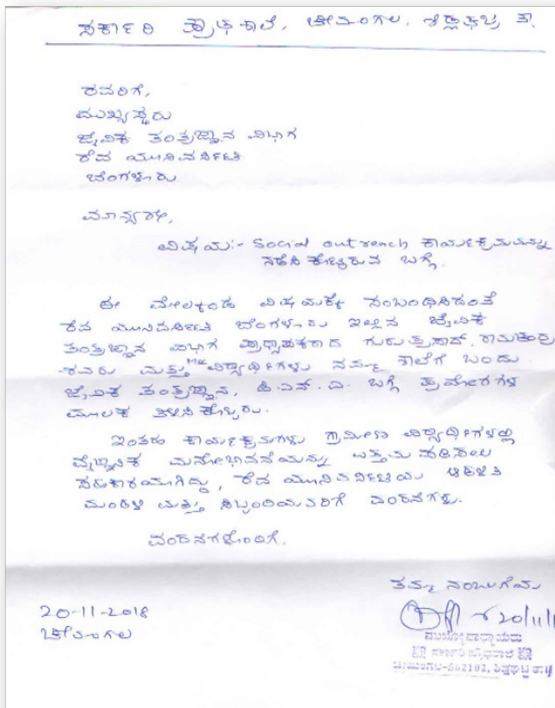 ಸರ್ಕಾರಿ ಪ್ರೌಢಶಾಲೆ, ಚೀಮಂಗಲ, ಶಿಡ್ಲಘಟ್ಟ ತಾ.
ರವರಿಗೆ,
ಮುಖ್ಯಸ್ಥರು
ಜೈವಿಕ ತಂತ್ರಜ್ಞಾನ ವಿಭಾಗ
ರೇವ ಯುನಿವರ್ಸಿಟಿ
ಬೆಂಗಳೂರು
ಮಾನ್ಯರೇ,
ವಿಷಯ:- Social outreach ಕಾರ್ಯಕ್ರಮವನ್ನು
ನಡೆಸಿ ಕೊಟ್ಟಿರುವ ಬಗ್ಗೆ.
ಈ ಮೇಲ್ಕಂಡ ವಿಷಯಕ್ಕೆ ಸಂಬಂಧಿಸಿದಂತೆ
ರೇವ ಯುನಿವರ್ಸಿಟಿ ಬೆಂಗಳೂರು ಇಲ್ಲಿನ ಜೈವಿಕ
ತಂತ್ರಜ್ಞಾನ ವಿಭಾಗ ಪ್ರಾಧ್ಯಾಪಕರಾದ ಗುರುಪ್ರಸಾದ್, ರಾಮಚಂದ್ರ
ರವರು ಮತ್ತು Msc ವಿದ್ಯಾರ್ಥಿಗಳು ನಮ್ಮ ಶಾಲೆಗೆ ಬಂದು
ಜೈವಿಕ ತಂತ್ರಜ್ಞಾನ, ಡಿ.ಎನ್.ಎ. ಬಗ್ಗೆ ಪ್ರಯೋಗಗಳ
ಮೂಲಕ ತಿಳಿಸಿಕೊಟ್ಟರು.
ಇಂತಹ ಕಾರ್ಯಕ್ರಮಗಳು ಗ್ರಾಮೀಣ ವಿದ್ಯಾರ್ಥಿಗಳಲ್ಲಿ
ವೈಜ್ಞಾನಿಕ ಮನೋಭಾವನೆಯನ್ನು
ಸಹಕಾರಿಯಾಗಿದ್ದು, ರೇವ ಯುನಿವರ್ಸಿಟಿಯ ಆಡಳಿತ
ಮಂಡಳಿ ಮತ್ತು ಸಿಬ್ಬಂದಿಯವರಿಗೆ ವಂದನೆಗಳು.
ವಂದನೆಗಳೊಂದಿಗೆ.
ತಮ್ಮ ನಂಬುಗೆಯ
20-11-2018
ಚೀಮಂಗಲ
ಮುಖ್ಯೋಪಾಧ್ಯಾಯರು
ಸರ್ಕಾರಿ ಪ್ರೌಢಶಾಲೆ
ಚೀಮಂಗಲ-562102, ಶಿಡ್ಲಘಟ್ಟ ತಾ||